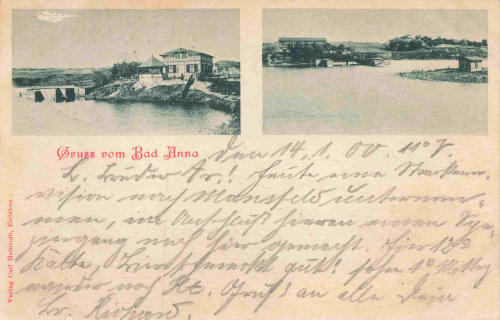 Gruss vom Bad Anna
den 14.1.00. 11⁰ V.
L. Bruder Ar.! Heute eine Strecken
vision nach Mansfeld unternom-
men, im Anschluß hieran einen Spa-
ziergang nach hier gemacht. Hier 12⁰
Kälte, Bier schmeckt gut! 1⁰ Mittag
wieder nach Gruß an alle Dein
Br. Richard.
Verlag Carl Heinroth, Eisleben